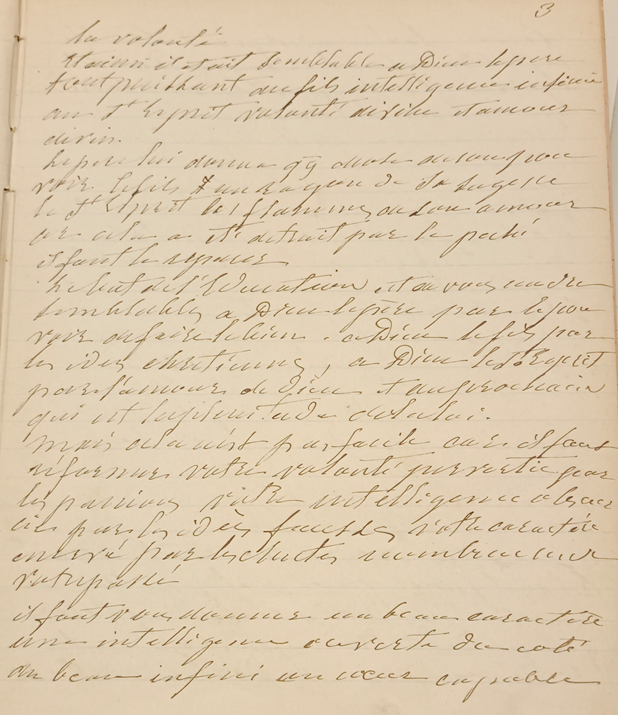 3
la volonté
Et ainsi il etait semblable a Dieu le pere
tout puissant au fils intelligence infinie
au St Esprit volonté divine et amour
divin.
Le pere lui donna qq chose de son pou
voir le fils un rayon de sa sagesse
le St Esprit les flammes de son amour
or cela a été detruit par le peché
il faut le reparer
Le but de l'Education est de vous rendre
semblables a Dieu le père par le pou
voir de faire le bien. a Dieu le fils par
les idées chretiennes, a Dieu le St Esprit
par l'amour de Dieu et du prochain
qui est la plenitude de la loi.
Mais cela n'est pas facile car il faut
reformer votre volonté pervertie par
les passions votre intelligence obscur
cie par les idées fausses votre caractère
enervé par les chutes nombreuses de
votre passé
il faut vous donner un beau caractère
une intelligence ouverte du coté
du beau infini un cœur capable